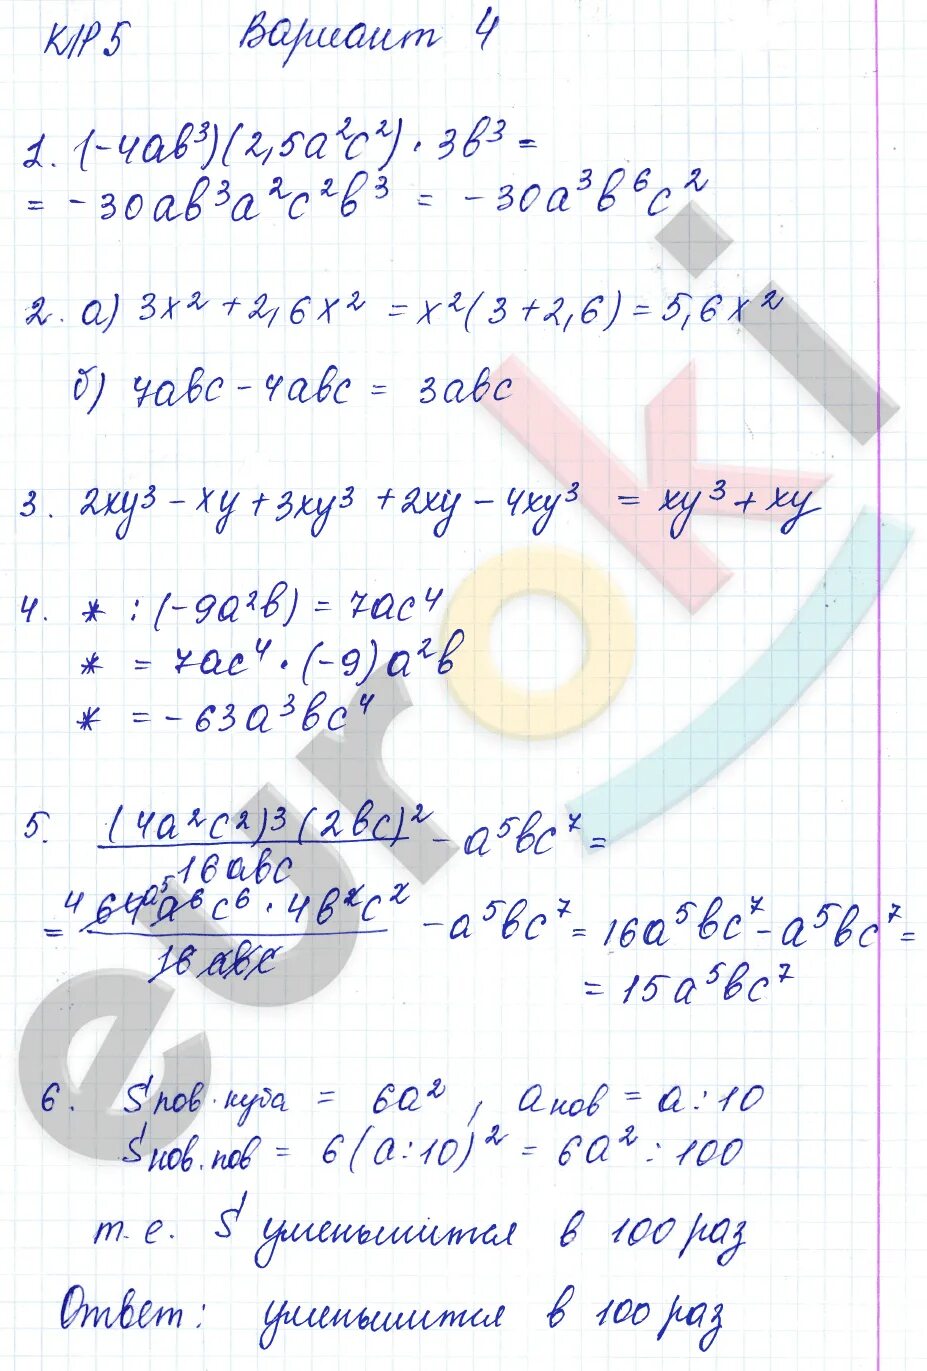 К/Р 5 Вариант 4
1. (-4ab³)(2,5a²c²) · 3b³ =
= -30ab³a²c²b³ = -30a³b⁶c²
2. а) 3x² + 2,6x² = x²(3 + 2,6) = 5,6x²
б) 7abc - 4abc = 3abc
3. 2xy³ - xy + 3xy³ + 2xy - 4xy³ = xy³ + xy
4. * : (-9a²b) = 7ac⁴
* = 7ac⁴ · (-9)a²b
* = -63a³bc⁴
5. (4a²c²)³(2bc)² / 16abc - a⁵bc⁷ =
= 64a⁶c⁶ · 4b²c² / 16abc - a⁵bc⁷ = 16a⁵bc⁷ - a⁵bc⁷ =
= 15a⁵bc⁷
6. S пов. куба = 6a², a нов = a : 10
S нов. пов = 6(a : 10)² = 6a² : 100
т. е. S уменьшится в 100 раз
Ответ: уменьшится в 100 раз
euroki